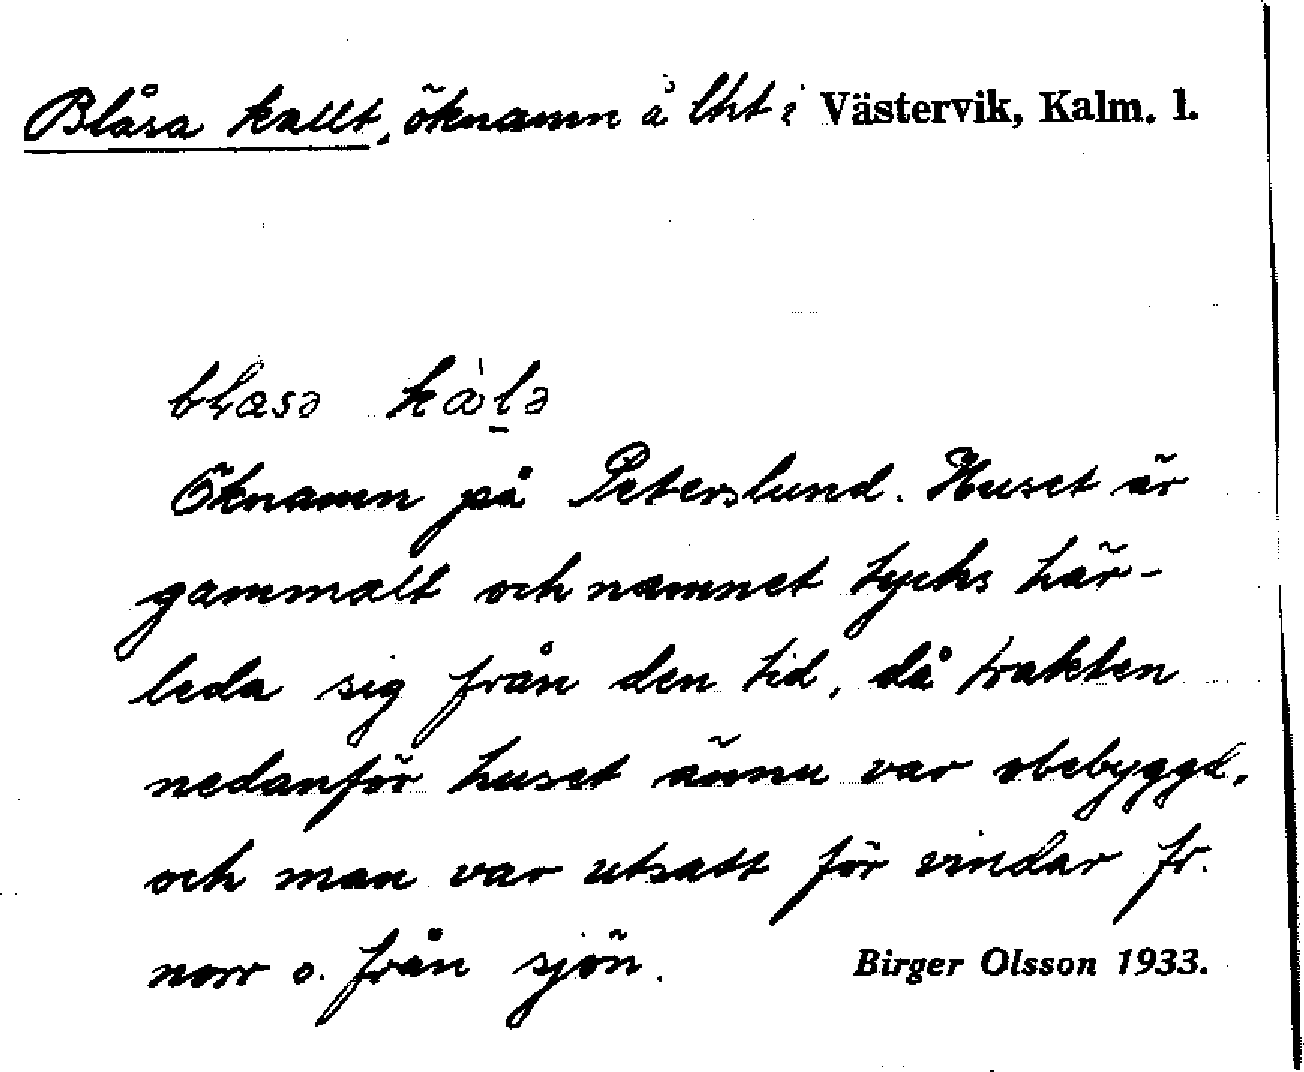 Blåsa kallt, öknamn å lht i Västervik, Kalm. l.
Öknamn på Peterslund. Huset är
gammalt och namnet tycks här-
leda sig från den tid, då trakten
nedanför huset ännu var obebyggd,
och man var utsatt för vindar fr.
norr o. från sjön. Birger Olsson 1933.